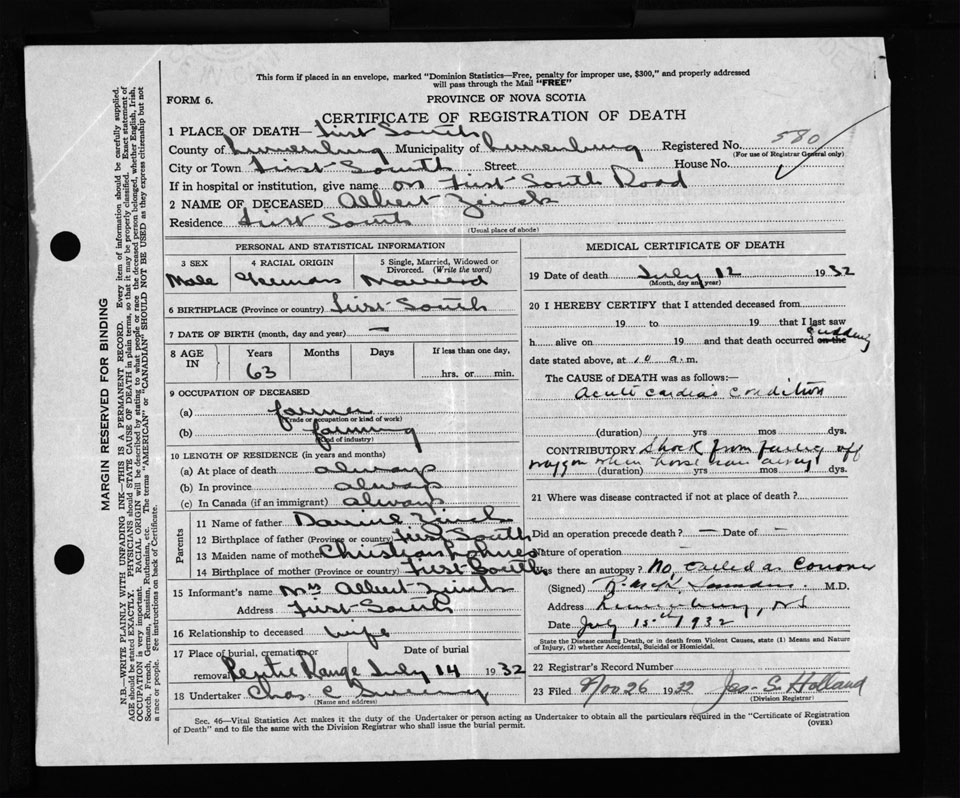 This form if placed in an envelope, marked "Dominion Statistics—Free, penalty for improper use, $300," and properly addressed
will pass through the Mail "FREE"
FORM 6.
PROVINCE OF NOVA SCOTIA
CERTIFICATE OF REGISTRATION OF DEATH
1 PLACE OF DEATH— First South
580
County of Lunenburg Municipality of Lunenburg Registered No.
(For use of Registrar General only)
City or Town First South Street House No.
If in hospital or institution, give name on First South Road
2 NAME OF DECEASED Albert Zinck
Residence First South
(Usual place of abode)
PERSONAL AND STATISTICAL INFORMATION
3 SEX 4 RACIAL ORIGIN 5 Single, Married, Widowed or
Divorced. (Write the word)
Male German Married
6 BIRTHPLACE (Province or country) First South
7 DATE OF BIRTH (month, day and year) —
8 AGE IN Years Months Days If less than one day,
63 hrs. or min.
9 OCCUPATION OF DECEASED
(a) farmer
(Trade or occupation or kind of work)
(b) farming
(Kind of industry)
10 LENGTH OF RESIDENCE (in years and months)
(a) At place of death always
(b) In province always
(c) In Canada (if an immigrant) always
Parents
11 Name of father Zinck
12 Birthplace of father (Province or country) First South
13 Maiden name of mother
14 Birthplace of mother (Province or country) First South
15 Informant's name Mrs Albert Zinck
Address First South
16 Relationship to deceased wife
17 Place of burial, cremation or Date of burial
removal Range July 14 1932
18 Undertaker Chas. C
(Name and address)
MEDICAL CERTIFICATE OF DEATH
19 Date of death July 12 1932
(Month, day and year)
20 I HEREBY CERTIFY that I attended deceased from
19 to 19 that I last saw
h alive on 19 and that death occurred on the suddenly
date stated above, at 10 a.m.
The CAUSE OF DEATH was as follows:—
Acute cardiac condition
(duration) yrs mos dys.
CONTRIBUTORY Shock from falling off
waggon when horse ran away
(duration) yrs mos dys.
21 Where was disease contracted if not at place of death?
Did an operation precede death? — Date of —
Nature of operation
Was there an autopsy? No, called as Coroner
(Signed) M.D.
Address Lunenburg, NS
Date July 15th 1932
State the Disease causing Death, or in death from Violent Causes, state (1) Means and Nature
of Injury, (2) whether Accidental, Suicidal or Homicidal.
22 Registrar's Record Number
23 Filed Nov 26 1932 Jas. S. Holland
(Division Registrar)
Sec. 46—Vital Statistics Act makes it the duty of the Undertaker or person acting as Undertaker to obtain all the particulars required in the "Certificate of Registration
of Death" and to file the same with the Division Registrar who shall issue the burial permit.
(OVER)
MARGIN RESERVED FOR BINDING
N.B.—WRITE PLAINLY WITH UNFADING INK—THIS IS A PERMANENT RECORD. Every item of information should be carefully supplied.
AGE should be stated EXACTLY. PHYSICIANS should STATE CAUSE OF DEATH in plain terms, so that it may be properly classified. Exact statement of
OCCUPATION is very important. RACIAL ORIGIN will be described by stating to what people or race the deceased person belonged, whether English, Irish,
Scotch, French, German, Russian, Ruthenian, etc. The terms "AMERICAN" or "CANADIAN" SHOULD NOT BE USED as they express citizenship but not
a race or people. See instructions on back of Certificate.